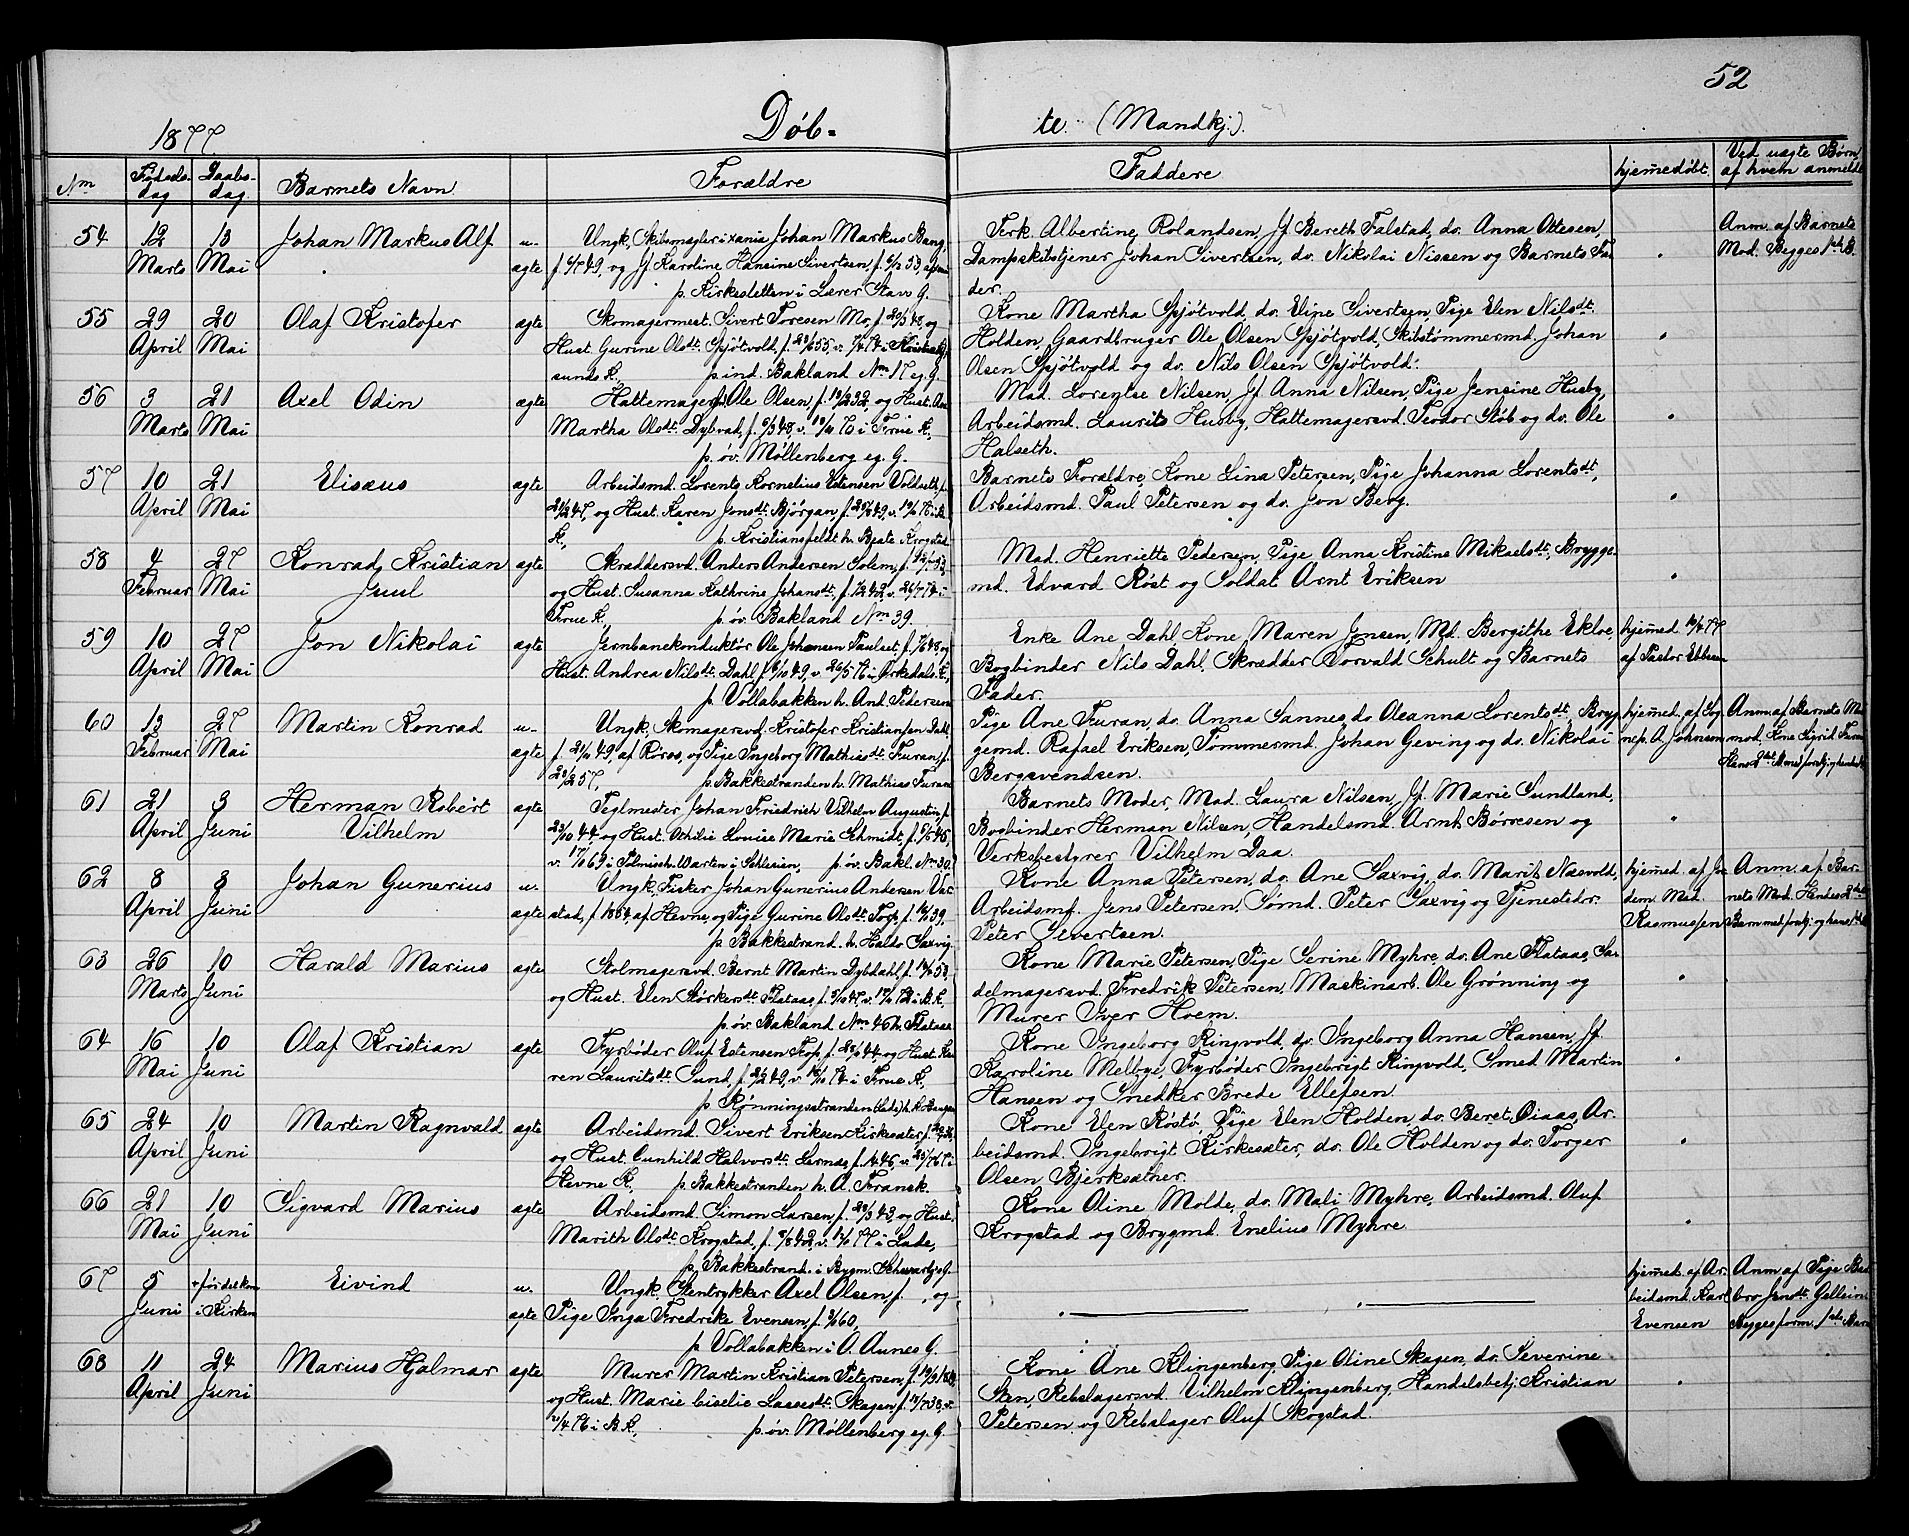 52
1877. Døb- te. (Mandkj.).
Nm Fødselsdag Daabsdag. Barnets Navn Forældre Faddere hjemmedøbt. Ved uægte Børn af hvem anmeldt
54 12 Marts 13 Mai Johan Markus Alf u-ægte
Ungk. Skibsmægler i Xania Johan Markus Bang
f. 49, og Jf. Karoline Hansine Sivertsen, f. 53,
p. Kirkesletten i Lærer Stavs G.
Terk. Albertine Rolandsen, Jf. Bereth Falstad, do. Anna Ottesen,
Dampskibstjener Johan Sivertsen, do. Nikolai Nissen og Barnets Fa-
der.
Anm. af Barnets
Mod. Begges 1ste B.
55 29 April 20 Mai Olaf Kristofer ægte
Skomagermest. Sivert Toresen Mo, f. 20/3 48, og
Hust. Gurine Olsdt. Spjøtvold, f. 55, i Kristian-
sunds K., p. ind. Bakland Nm 17 eg. G.
Kone Martha Spjøtvold, do. Eline Sivertsen, Pige Elen Nilsdt.
Holden, Gaardbruger Ole Olsen Spjøtvold, Skibstømmermd. Johan
Olsen Spjøtvold og do. Nils Olsen Spjøtvold.
56 3 Marts 21 Mai Axel Odin ægte
Hattemager Ole Olsen, f. 32, og Hust. Ane
Martha Olsdt. Dybvad, f. 6/3 48, v. 70 i Frue K.,
p. øv. Møllenberg eg. G.
Mad. Lorentse Nilsen, Jf. Anna Nilsen, Pige Jensine Husby,
Arbeidsmd. Laurits Husby, Hattemagersvd. Teodor Støb og do. Ole
Halseth.
57 10 April 21 Mai Elisæus ægte
Arbeidsmd. Lorents Kornelius Estensen Voldseth, f.
21/2 47, og Hust. Karen Jonsdt. Bjørgan, f. 49, v. 76 i B.
K., p. Kristiansfeldt h. Beate Krogstad
Barnets Forældre, Kone Lina Petersen, Pige Johanna Lorentsdt.,
Arbeidsmd. Paul Petersen og do. Jon Berg.
58 4 Februar 27 Mai Konrad Kristian Juul ægte
Skræddersvd. Anders Andersen Solem, f. 53,
og Hust. Susanna Kathrine Johansdt., f. 42, v. 26/7 74 i
Frue K., p. øv. Bakland Nm 39.
Mad. Henriette Pedersen, Pige Anna Kristine Mikaelsdt., Brygge-
md. Edvard Röst og Soldat Arnt Eriksen
59 10 April 27 Mai Jon Nikolai ægte
Jernbanekonduktör Ole Johansen Paulset, f. 48, og
Hust. Andrea Nilsdt. Dahl, f. 8/10 49, v. 26/5 76 i Orkedals K.,
p. Vollabakken h. And. Pedersen
Enke Ane Dahl, Kone Maren Jonsen, Md. Bergithe Ekloe,
Bogbinder Nils Dahl, Skrædder Torvald Schult og Barnets
Fader.
hjemmed. 77
af Pastor Ebbesen
60 13 Februar 27 Mai Martin Konrad u-ægte
Ungk. Skomagersvd. Kristofer Kristiansen Dahl,
f. 21/11 49, af Røros, og Pige Ingeborg Mathiasdt. Furan, f.
23/2 57, p. Bakkestranden h. Mathias Furan
Pige Ane Furan, do. Anna Sannes, do. Oleanna Lorentsdt., Bryg-
gemd. Rafael Eriksen, Tømmermd. Johan Geving og do. Nikolai
Bergsvendsen.
hjemmed. af Sog-
nep. A. Johnsen
Anm. af Barnets Mor-
mod. Kone Sigrid Furan
61 21 April 3 Juni Herman Robert Vilhelm ægte
Teglmester Johan Friedrich Vilhelm Augustin, f.
23/10 44, og Hust. Othilie Louise Marie Schmidt, f. 46,
v. 17/10 69 i Polnisch Warten i Schlesien, p. øv. Bakl. Nm 30.
Barnets Moder, Mad. Laura Nilsen, Jf. Marie Sundland,
Bogbinder Herman Nilsen, Handelsmd. Arnt Børresen og
Verksbestyrer Vilhelm Daa.
62 8 April 3 Juni Johan Gunerius u-ægte
Ungk. Fisker Johan Gunerius Andersen Var-
stad, f. 1854, af Hevne, og Pige Gurine Olsdt. Torp, f. 39,
p. Bakkestrand. h. Haldo Saxvig
Kone Anna Petersen, do. Ane Saxvig, do. Marit Næsvold,
Arbeidsmd. Jens Petersen, Sømd. Peter Saxvig og Tjenestedr.
Peter Sivertsen.
hjemmed. af Jor-
dem. Mad.
Rasmussen
Anm. af Bar-
nets Mod. Hendes 2det
63 26 Marts 10 Juni Harald Marius ægte
Stolmagersvd. Bernt Martin Dybdahl, f. 53,
og Hust. Elen Størkersdt. Flataas, f. 47, v. 72 i B. K.,
p. øv. Bakland Nm 46 h. Flataas
Kone Marie Petersen, Pige Serine Myhre, do. Ane Flataas, Sa-
delmagersvd. Fredrik Petersen, Maskinarb. Ole Grønning og
Murer Iver Hoem.
64 16 Mai 10 Juni Olaf Kristian ægte
Fyrbøder Oluf Estensen Fop, f. 44 og Hust. Ka-
ren Lauritsdt. Sund, f. 49, v. 74 i Frue K.,
p. Rønningsstranden (Lade) h. K. Haugan
Kone Ingeborg Ringvold, do. Ingeborg Anna Hansen, Jf.
Karoline Melbye, Fyrbøder Ingebrigt Ringvold, Smed Martin
Hansen og Snedker Brede Ellefsen.
65 24 April 10 Juni Martin Ragnvald ægte
Arbeidsmd. Sivert Eriksen Kirkesæter, f.
og Hust. Gunhild Halvorsdt. Lernæs, f. 46, v. 67 i
Hevne K., p. Bakkestranden h. A. Fransk.
Kone Elen Röstö, Pige Elen Holden, do. Beret Oiaas, Ar-
beidsmd. Ingebrigt Kirkesæter, do. Ole Holden og do. Torger
Olsen Bjerksæther.
66 21 Mai 10 Juni Sigvard Marius ægte
Arbeidsmd. Simon Larsen, f. 43, og Hust.
Marith Olsdt. Krogstad, f. 42, v. 77 i Lade,
p. Bakkestrand. i Bygm. Schwartzs G.
Kone Oline Molde, do. Mali Myhre, Arbeidsmd. Oluf
Krogstad og Brygmd. Emelius Myhre
67 5 Juni før det kom i Kirken Eivind u-ægte
Ungk. Stentrykker Axel Olsen, f. , og
Pige Inga Fredrike Evensen, f. 60,
p. Vollabakken i O. Aunes G.
hjemmed. af Ar-
beidsmd. Karl
Evensen
Anm. af Pige Bar-
bro Jensdt. Gellein
Begges form. 1ste Barn
68 11 April 24 Juni Marius Hjalmar ægte
Murer Martin Kristian Petersen, f.
og Hust. Marie Giselie Lassesdt. Skagen, f. 38, v.
76 i B. K., p. øv. Møllenberg eg. G.
Kone Ane Klingenberg, Pige Oline Skagen, do. Severine
Sten, Rebslagersvd. Vilhelm Klingenberg, Handelsbetj. Kristian
Petersen og Rebslager Oluf Skogstad.